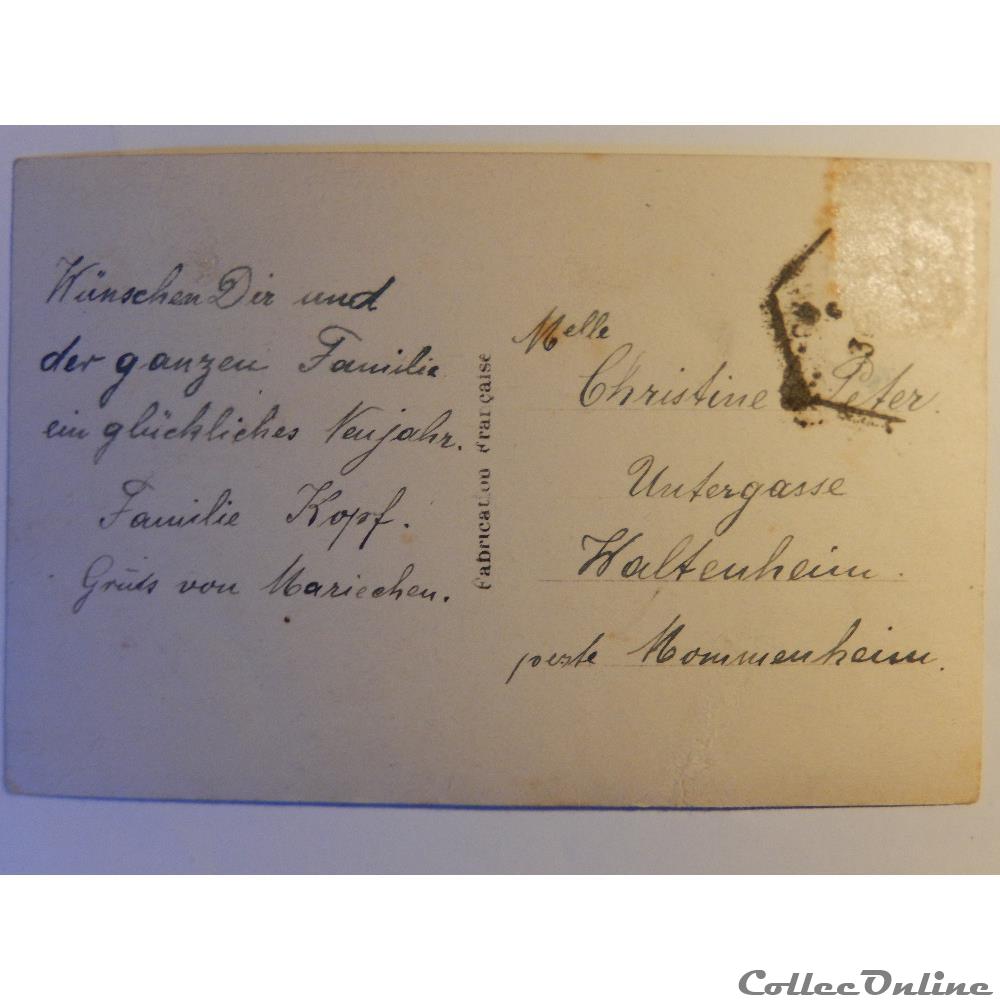 Wünschen Dir und
der ganzen Familie
ein glückliches Neujahr.
Familie Kopf.
Gruss von Mariechen.
Fabrication Française
Melle
Christine Peter.
Untergasse
Waltenheim.
poste Mommenheim.
3
CollecOnline